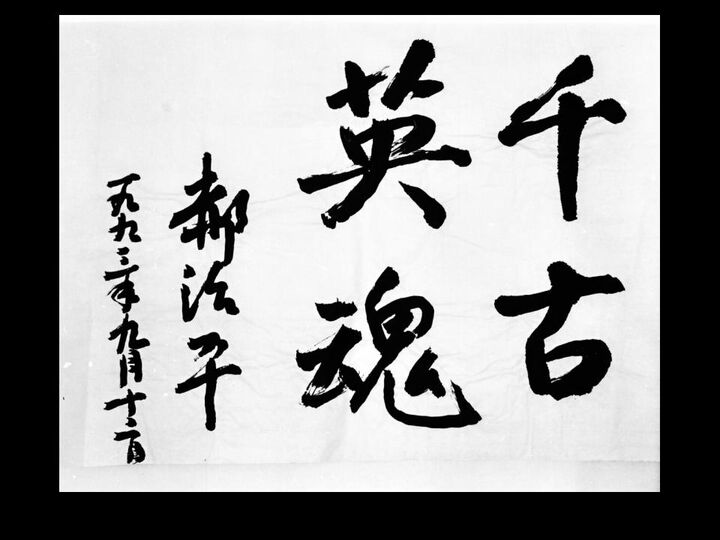 千古
英魂
郝治平
一九九三年九月十二日